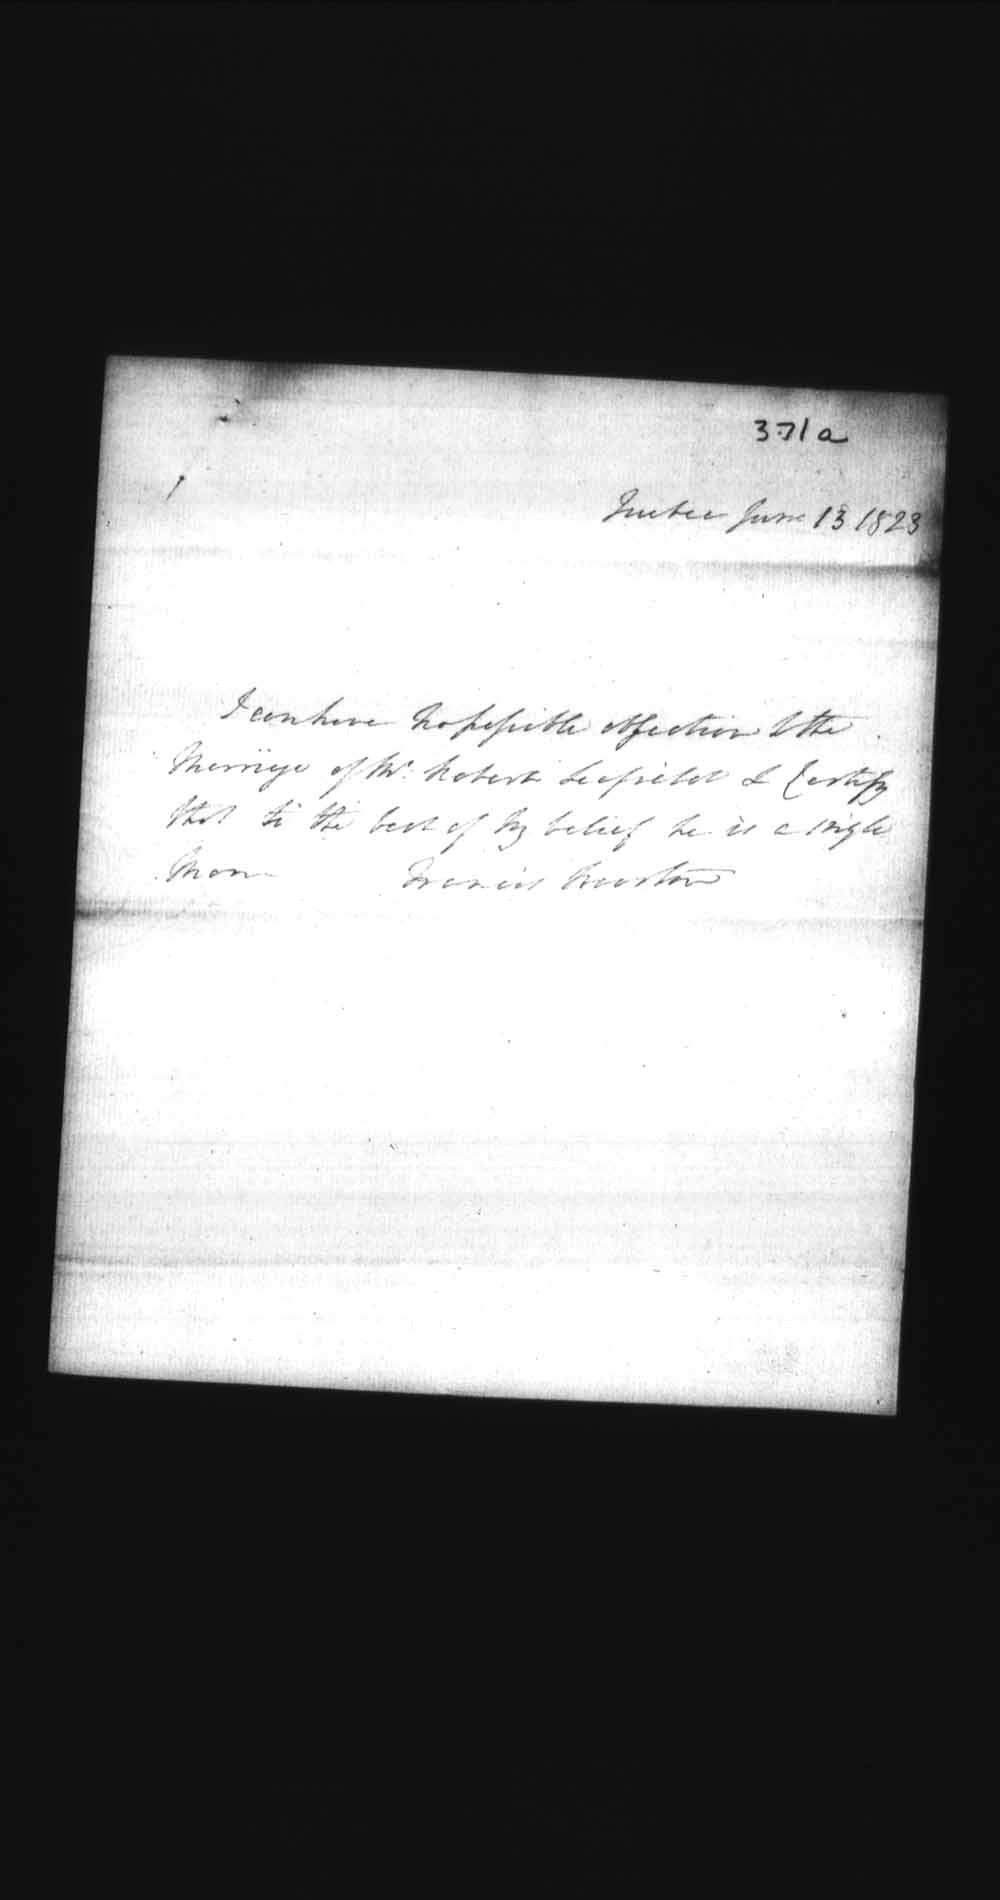 371a
Quebec June 13 1823
I can have no possible objection to the
Marriage of Mr. Robert & Certify
that to the best of my belief he is a single
Man Francis